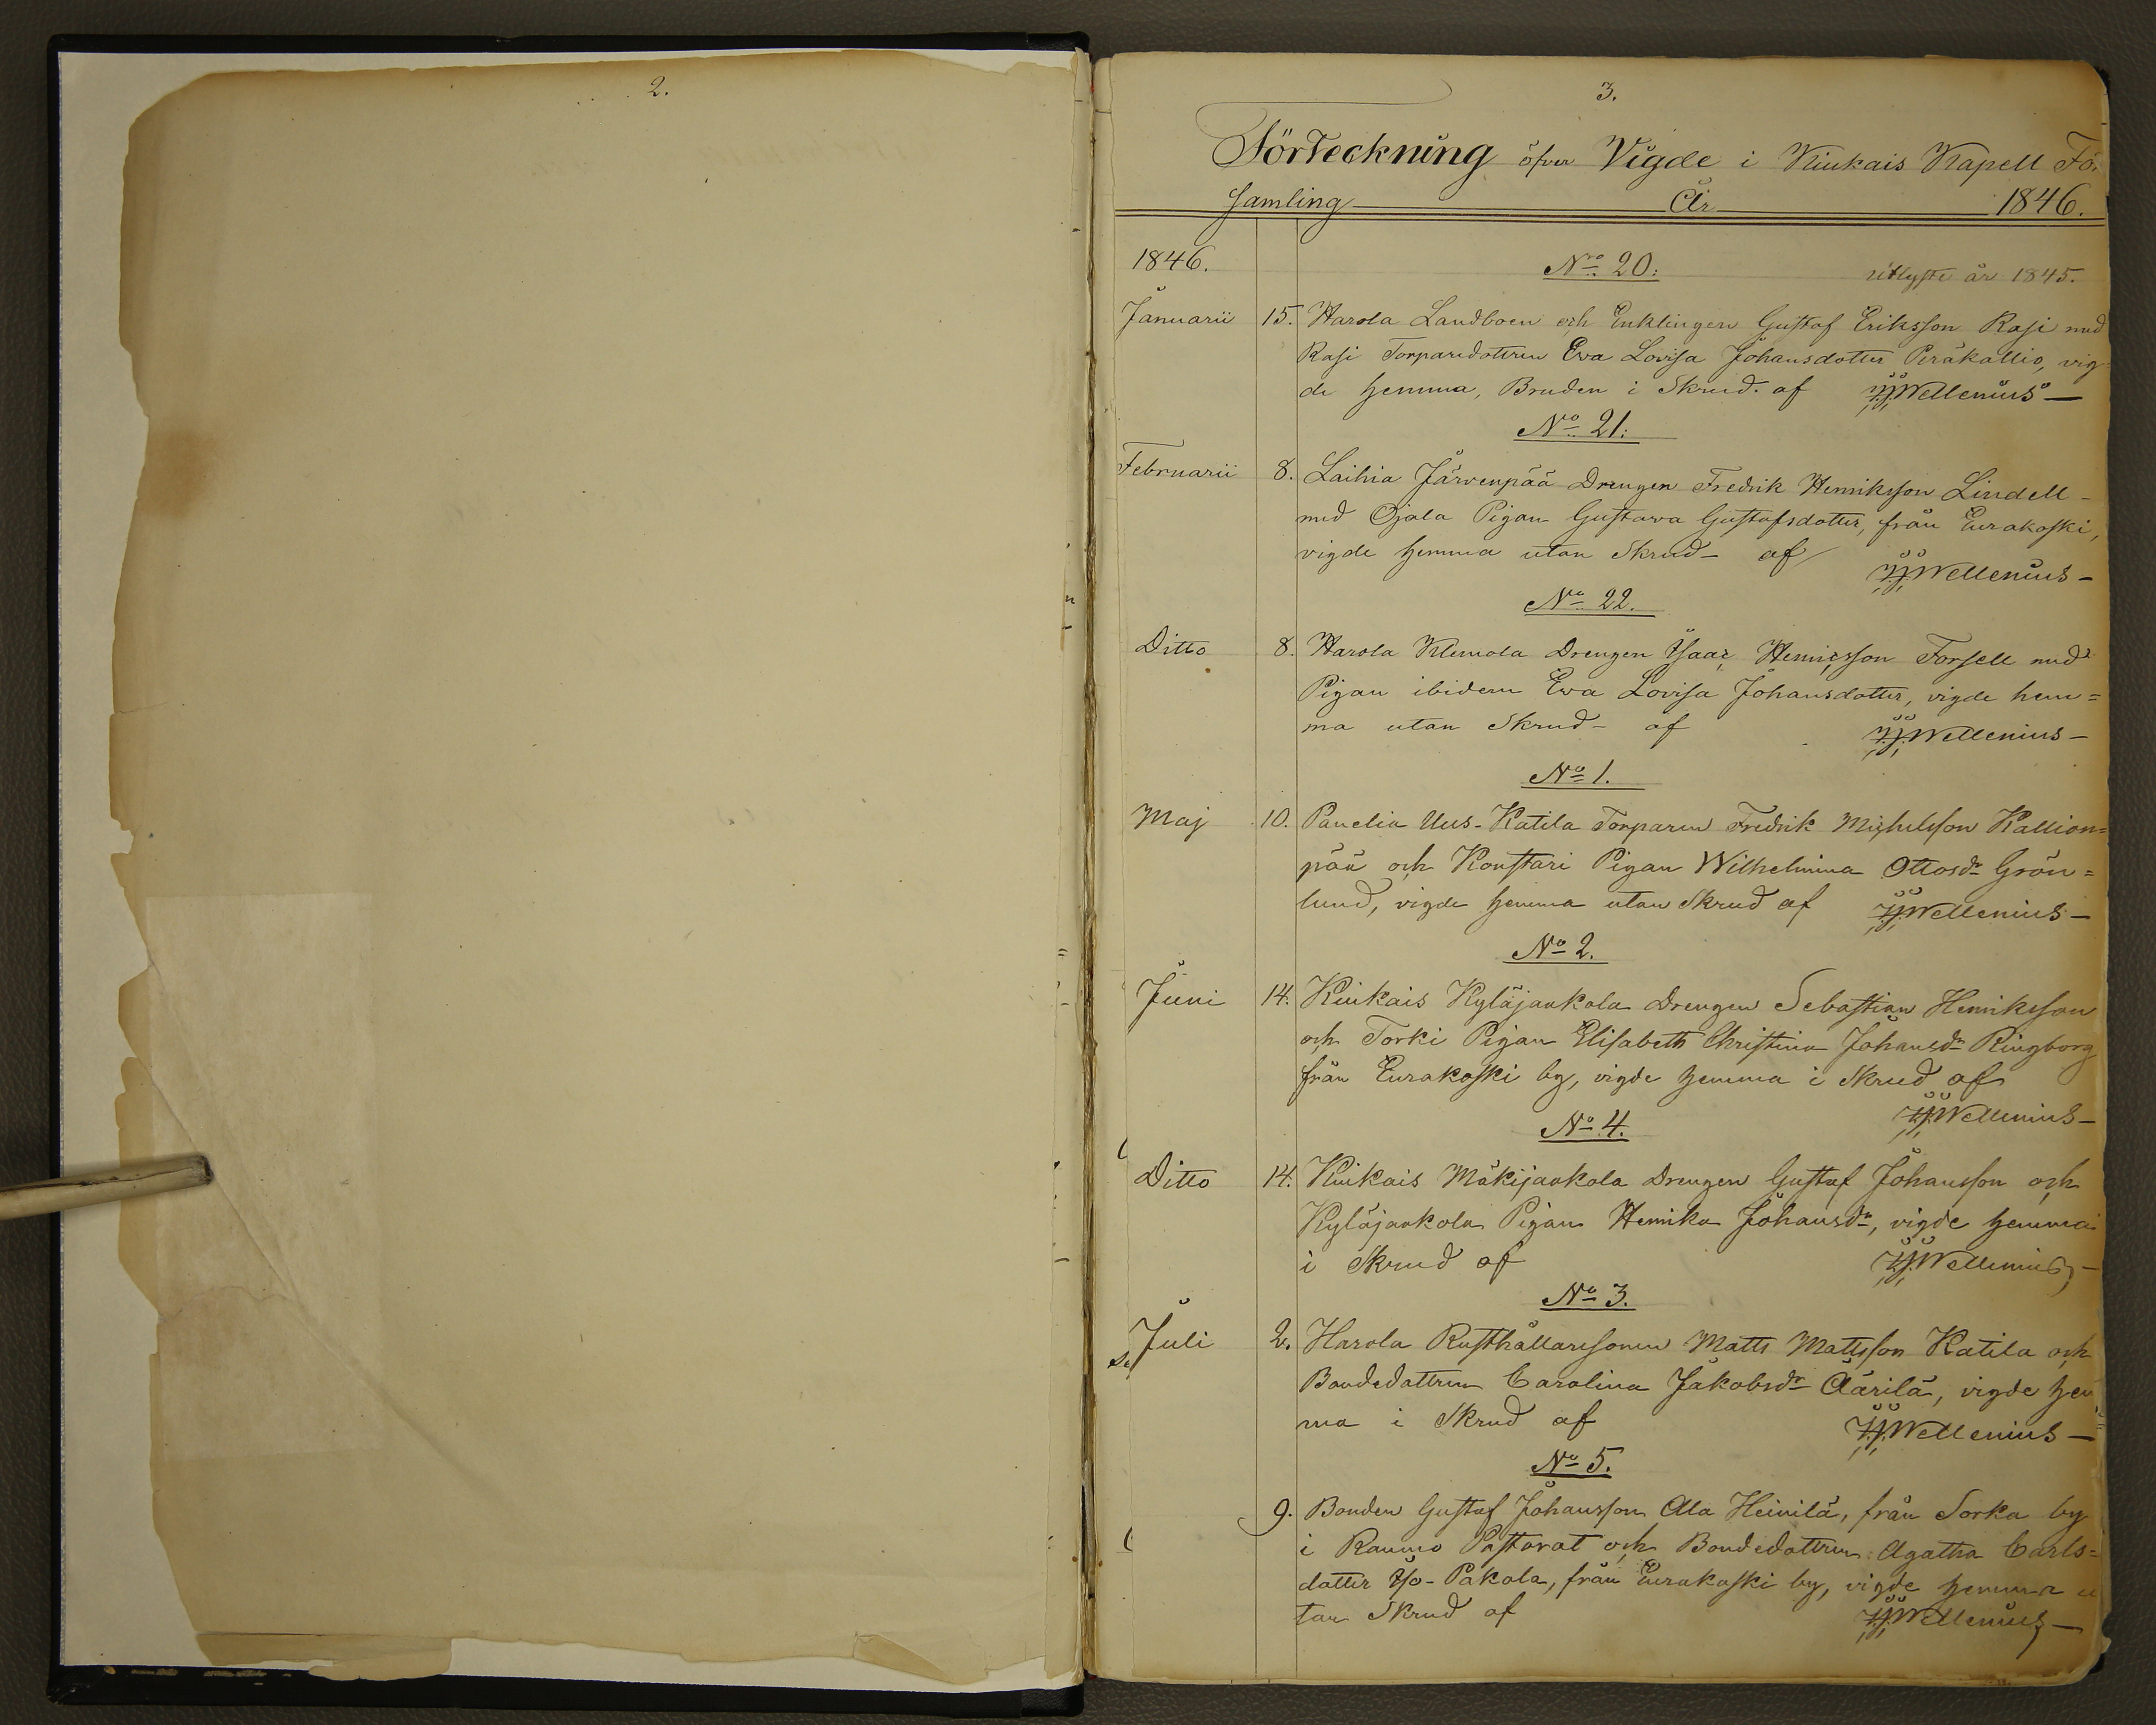 2.
3.
Förteckning öfver Vigde i Kiukais Kapell Fö
samling År 1846.
1846. No 20: utlyste år 1845.
Januarii 15. Harola Landboen och Enklingen Gustaf Eriksson Rasi med
Rasi Torparedottren Eva Lovisa Johansdotter Peräkallio, vig
de hemma, Bruden i Skrud. af Wellenius—
No 21:
Februarii 8. Laihia Järvenpää Drengen Fredrik Henriksson Lindell –
med Ojala Pigan Gustava Gustafsdotter, från Eurakoski,
vigde hemma utan Skrud – af Wellenius –
No 22.
Ditto 8. Harola Klemola Drengen Isaac Henricsson Forsell med
Pigan ibidem Eva Lovisa Johansdotter, vigde hem=
ma utan Skrud – af Wellenius –
No 1.
Maj 10. Panelia Uus-Katila Torparen Fredrik Michelsson Kallion=
pää och Konstari Pigan Wilhelmina Ottosdr Grön=
lund, vigde hemma utan Skrud af Wellenius –
No 2.
Juni 14. Kiukais Kyläjaakola Drengen Sebastian Henriksson
och Torki Pigan Elisabeth Christina Johansdr Ringborg
från Eurakoski by, vigde hemma i Skrud af
Wellenius –
No 4.
Ditto 14. Kiukais Mäkijaakola Drengen Gustaf Johansson och
Kyläjaakola Pigan Henrika Johansdr, vigde hemma
i Skrud af Wellenius –
No 3.
Juli 2. Harola Rusthållaresonen Matts Mattsson Katila och
Bondedottren Carolina Jakobsdr Äärilä, vigde hem
ma i Skrud af Wellenius –
No 5.
9. Bonden Gustaf Johansson Ala Heinilä, från Sorka by
i Raumo Pastorat och Bondedottren Agatha Carls=
dotter Iso-Pakola, från Eurakoski by, vigde hemma u
tan Skrud af Wellenius –